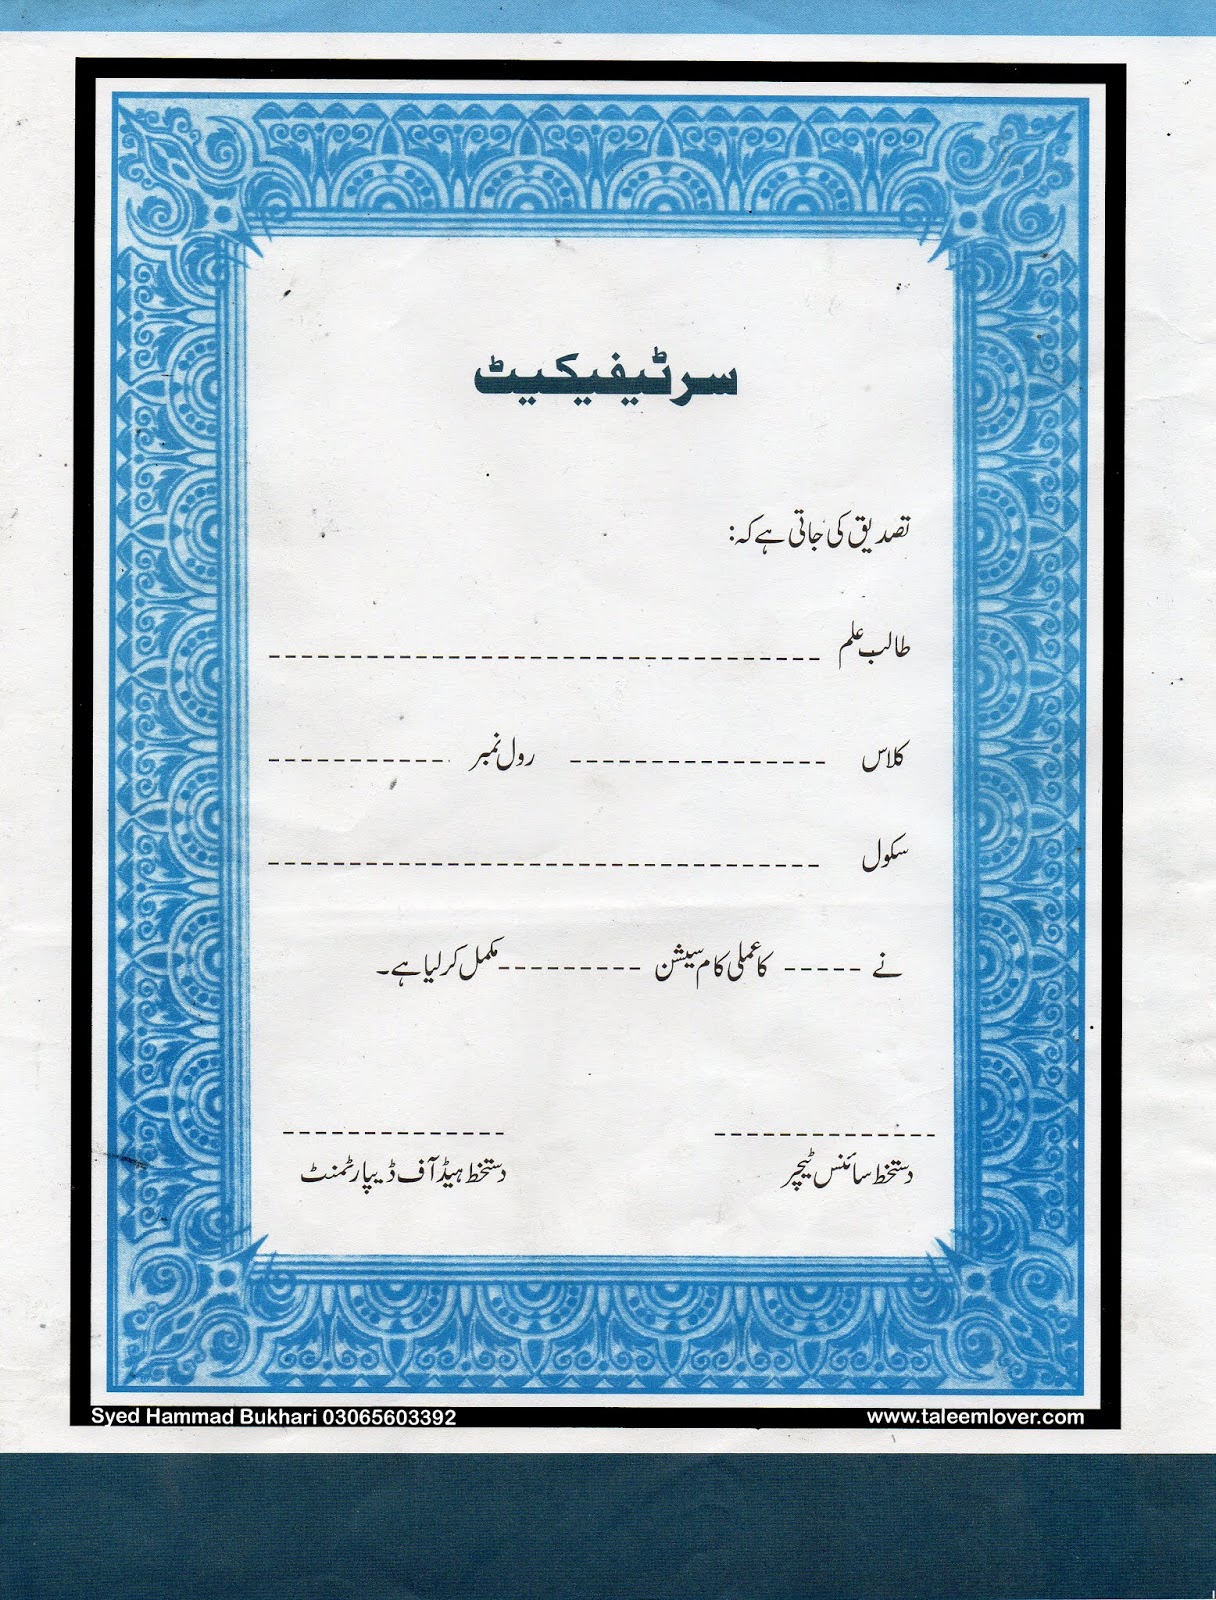 سرٹیفیکیٹ
تصدیق کی جاتی ہے کہ:
طالب علم ----------------------------------
کلاس ---------------- رول نمبر ------------
سکول -----------------------------------
نے ----- کا عملی کام سیشن --------- مکمل کر لیا ہے۔
-------------- --------------
دستخط سائنس ٹیچر دستخط ہیڈ آف ڈیپارٹمنٹ
Syed Hammad Bukhari 03065603392 www.taleemlover.com